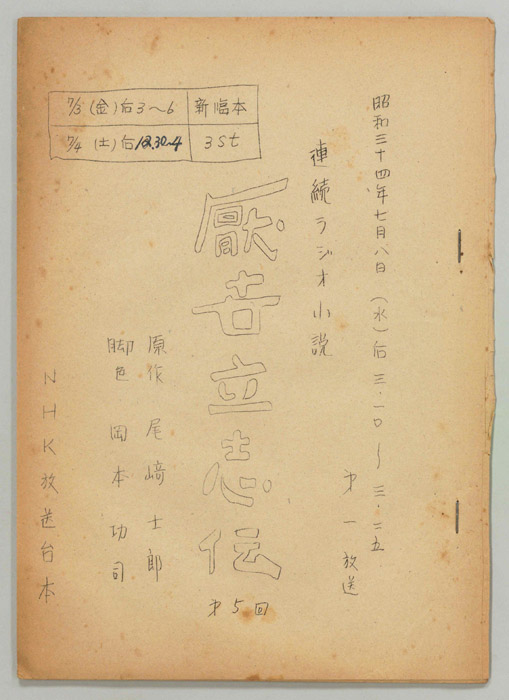 昭和三十四年七月八日(水)后三.一〇〜三.二五
㐧一放送
連続ラジオ小説
厭世立志伝
㐧5回
原作 尾﨑士郎
脚色 岡本功司
NHK放送台本
7/3(金)后3〜6 新臨本
7/4(土)后12.30〜4 3St